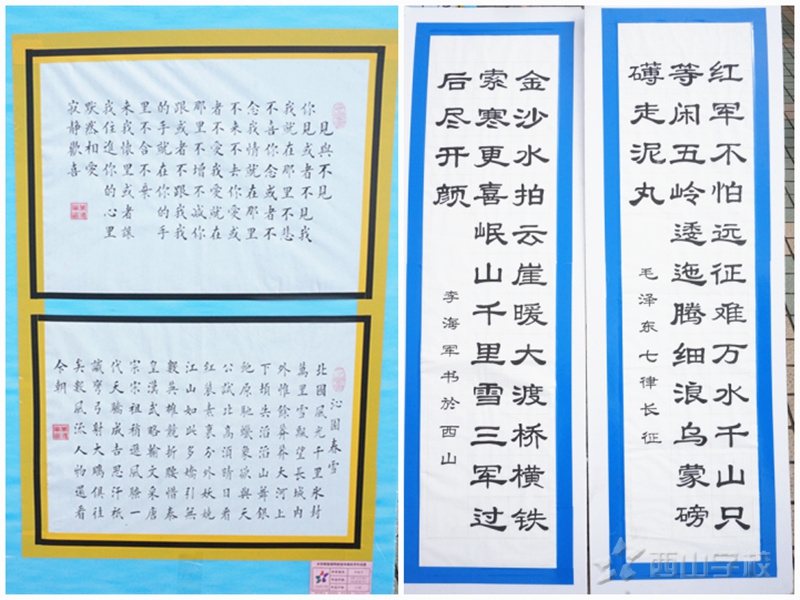 見與不見
你見或者不見我
我就在那里不悲
不喜你念或者不
念我情就在那里
不来不去你愛或
者不愛我愛就在
那里不增不減你
跟或者不跟我我
的手就在你的手
里不舍不棄
来我懷里或者讓
我住進你的心里
默然相愛
寂静歡喜
沁園春雪
北國風光千里冰封
萬里雪飄望長城内
外惟餘莽莽大河上
下頓失滔滔山舞銀
蛇原馳蠟象欲與天
公試比高須晴日看
紅裝素裹分外妖嬈
江山如此多嬌引無
數英雄競折腰惜秦
皇漢武略輸文采唐
宗宋祖稍遜風騷一
代天驕成吉思汗祇
識彎弓射大鵰俱往
矣數風流人物還看
今朝
红军不怕远征难万水千山只
等闲五岭逶迤腾细浪乌蒙磅
礴走泥丸
毛泽东七律长征
金沙水拍云崖暖大渡桥横铁
索寒更喜岷山千里雪三军过
后尽开颜
李海军书於西山
西山学校